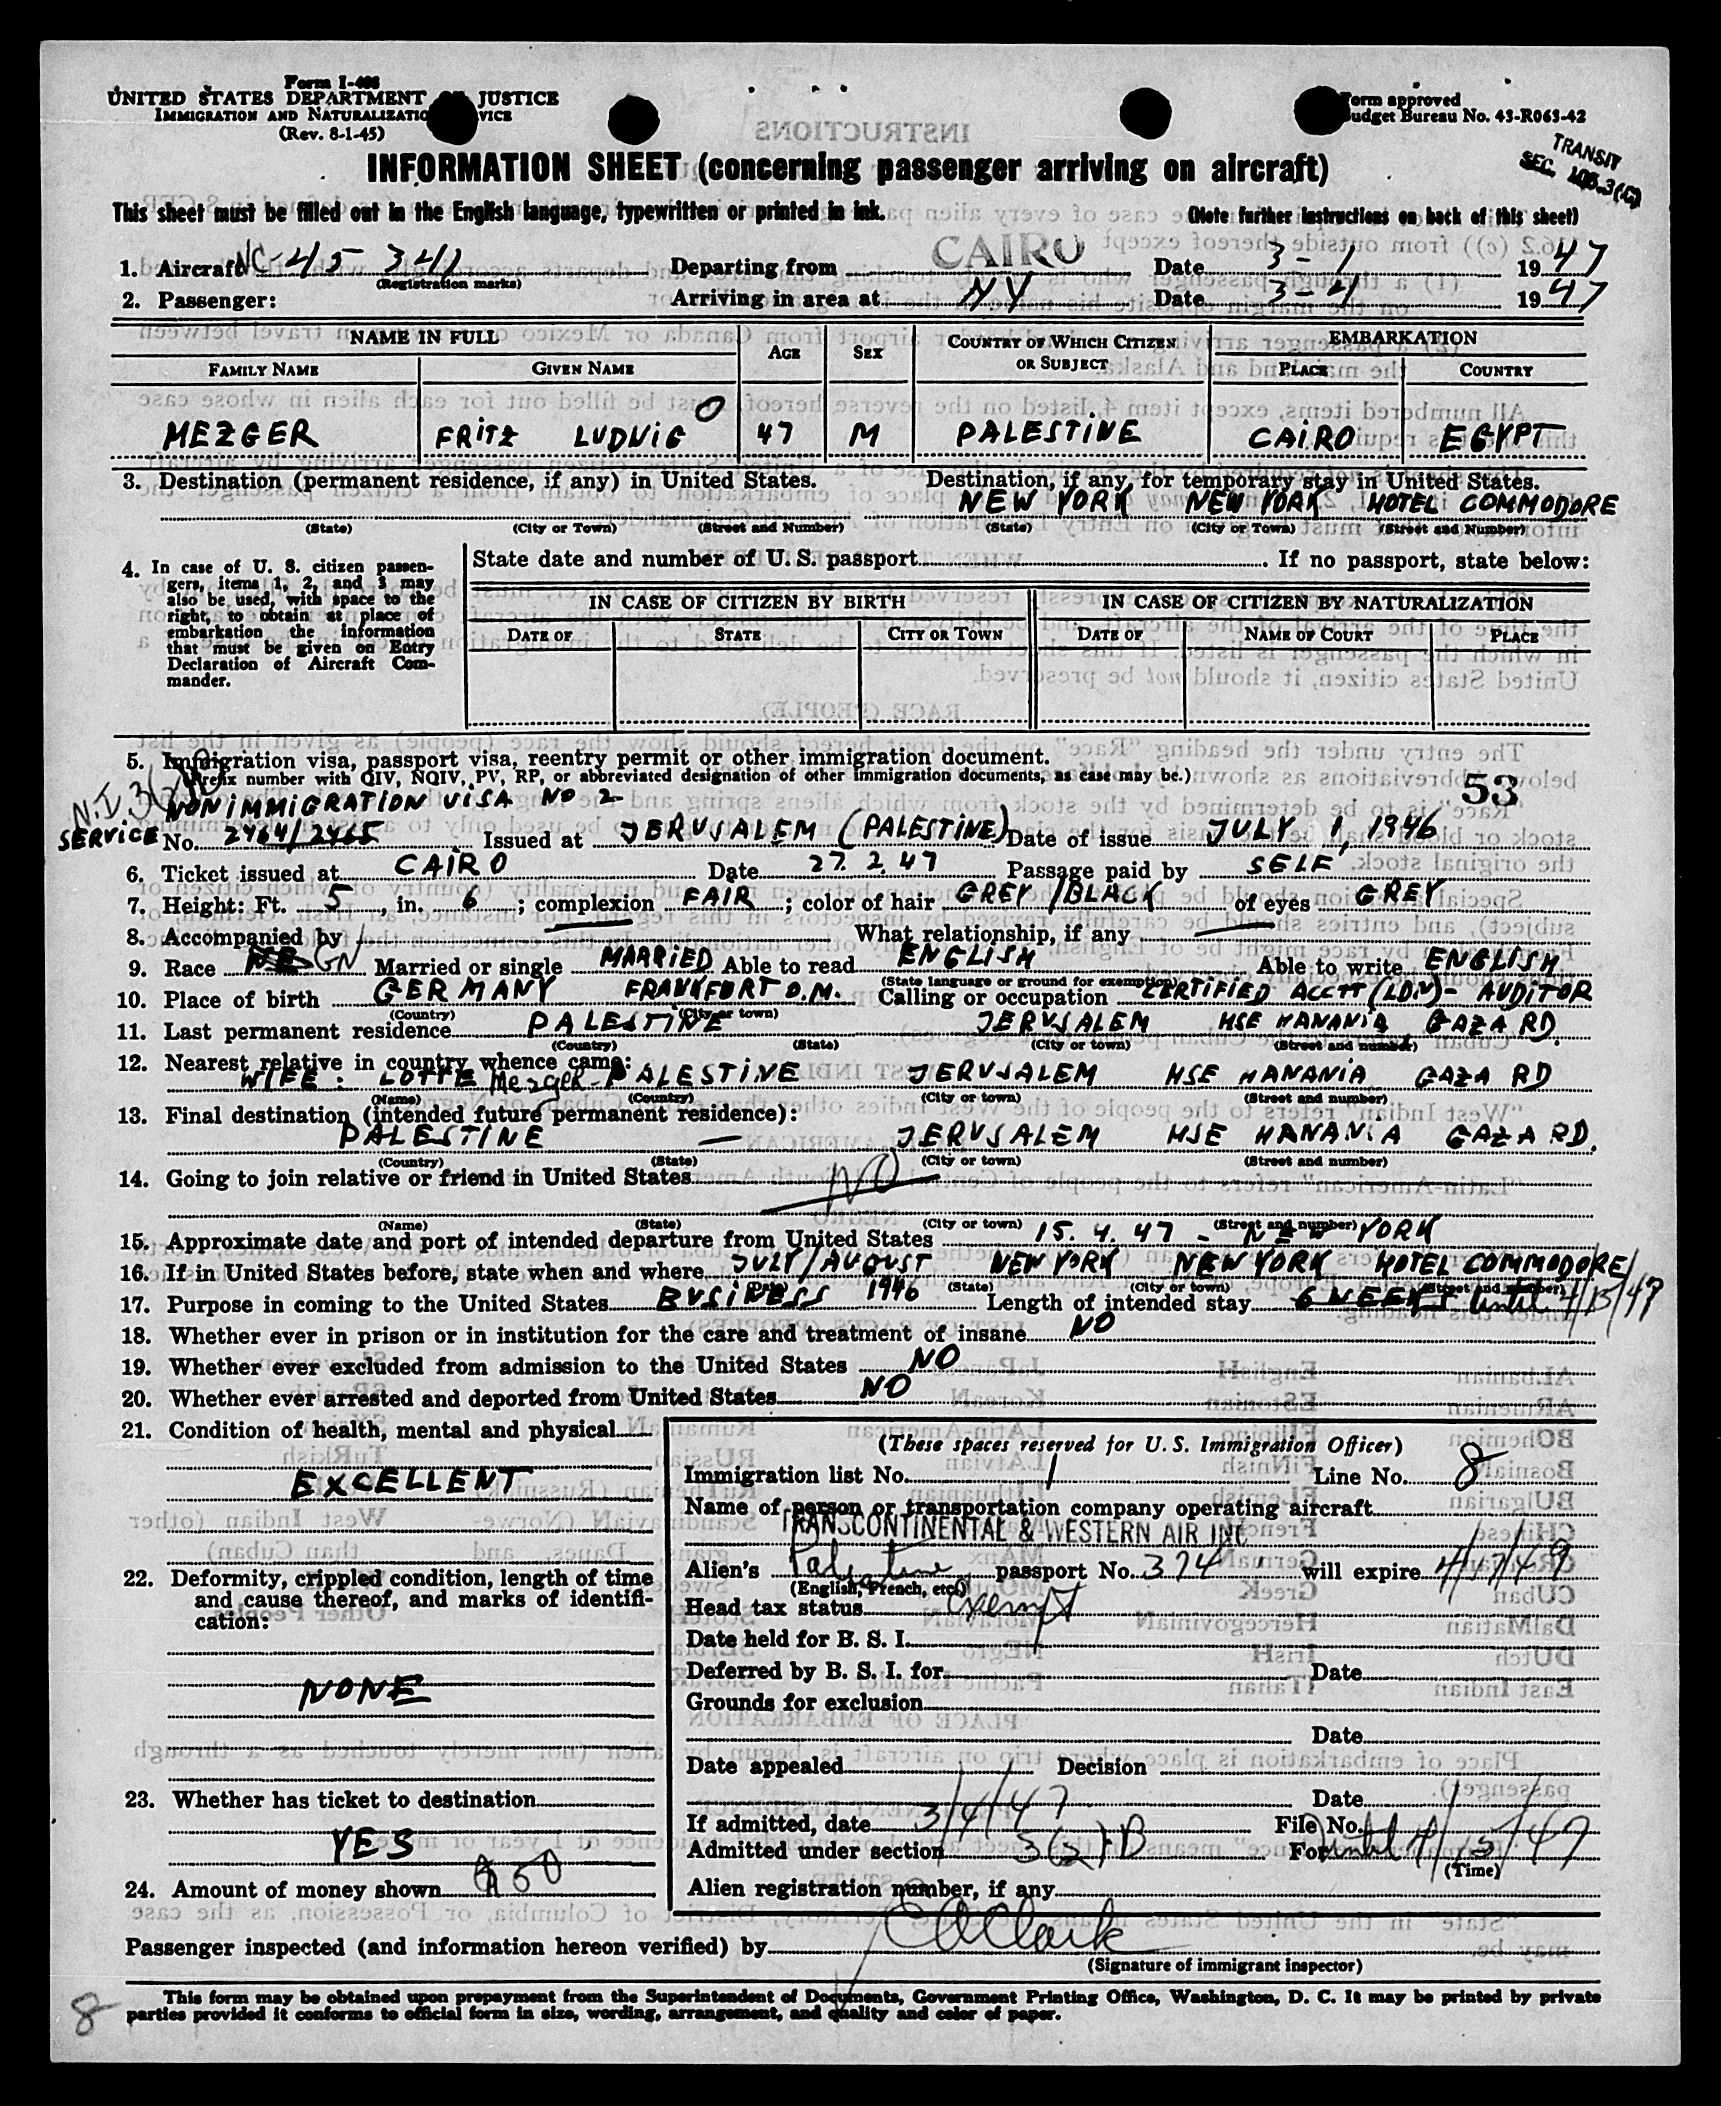 Form I-466
UNITED STATES DEPARTMENT JUSTICE
IMMIGRATION AND NATURALIZATIO VICE
(Rev. 8-1-45)
Form approved
Budget Bureau No. 43-R065-42
TRANSIT
SEC. 105.3(G)
INFORMATION SHEET (concerning passenger arriving on aircraft)
This sheet must be filled out in the English language, typewritten or printed in ink. (Note further instructions on back of this sheet)
1. Aircraft NC-45341 Departing from CAIRO Date 3-1 1947
(Registration marks)
2. Passenger: Arriving in area at NY Date 3-4 1947
NAME IN FULL AGE SEX COUNTRY OF WHICH CITIZEN OR SUBJECT EMBARKATION
FAMILY NAME GIVEN NAME PLACE COUNTRY
MEZGER FRITZ LUDVIG 0 47 M PALESTINE CAIRO EGYPT
3. Destination (permanent residence, if any) in United States. Destination, if any, for temporary stay in United States.
NEW YORK NEW YORK HOTEL COMMODORE
(State) (City or Town) (Street and Number) (State) (City or Town) (Street and Number)
4. In case of U. S. citizen passengers, items 1, 2, and 3 may also be used, with space to the right, to obtain at place of embarkation the information that must be given on Entry Declaration of Aircraft Commander.
State date and number of U. S. passport If no passport, state below:
IN CASE OF CITIZEN BY BIRTH IN CASE OF CITIZEN BY NATURALIZATION
DATE OF STATE CITY OR TOWN DATE OF NAME OF COURT PLACE
5. Immigration visa, passport visa, reentry permit or other immigration document.
(Prefix number with QIV, NQIV, PV, RP, or abbreviated designation of other immigration documents, as case may be.)
53
NON IMMIGRATION VISA NO 2
SERVICE No. 2464/2465 Issued at JERUSALEM (PALESTINE) Date of issue JULY 1, 1946
6. Ticket issued at CAIRO Date 27.2.47 Passage paid by SELF
7. Height: Ft. 5, in. 6; complexion FAIR; color of hair GREY/BLACK of eyes GREY
8. Accompanied by — What relationship, if any —
9. Race GN Married or single MARRIED Able to read ENGLISH Able to write ENGLISH
(State language or ground for exemption)
10. Place of birth GERMANY FRANKFURT O.M. Calling or occupation CERTIFIED ACCTT (LDN) - AUDITOR
(Country) (City or town)
11. Last permanent residence PALESTINE JERUSALEM HSE HANANIA GAZA RD.
(Country) (State) (City or town) (Street and number)
12. Nearest relative in country whence came:
WIFE: LOTTE Mezger - PALESTINE JERUSALEM HSE HANANIA GAZA RD
(Name) (Country) (City or town) (Street and number)
13. Final destination (intended future permanent residence):
PALESTINE — JERUSALEM HSE HANANIA GAZA RD.
(Country) (State) (City or town) (Street and number)
14. Going to join relative or friend in United States NO
(Name) (State) (City or town) (Street and number)
15. Approximate date and port of intended departure from United States 15.4.47 - NEW YORK
16. If in United States before, state when and where JULY/AUGUST 1946 NEW YORK NEW YORK HOTEL COMMODORE
(Date) (State) (City or town) (Street and number)
17. Purpose in coming to the United States BUSINESS Length of intended stay 6 WEEKS until 4/15/47
18. Whether ever in prison or in institution for the care and treatment of insane NO
19. Whether ever excluded from admission to the United States NO
20. Whether ever arrested and deported from United States NO
21. Condition of health, mental and physical
EXCELLENT
22. Deformity, crippled condition, length of time and cause thereof, and marks of identification:
NONE
23. Whether has ticket to destination
YES
24. Amount of money shown 50
(These spaces reserved for U. S. Immigration Officer)
Immigration list No. 1 Line No. 8
Name of person or transportation company operating aircraft
TRANSCONTINENTAL & WESTERN AIR INC
Alien's Palestine passport No. 374 will expire
(English, French, etc.)
Head tax status Exempt
Date held for B. S. I.
Deferred by B. S. I. for Date
Grounds for exclusion
Date
Date appealed Decision
Date
If admitted, date 3/4/47 File No.
Admitted under section 3(2)-B For until 4/15/47
(Time)
Alien registration number, if any
Passenger inspected (and information hereon verified) by Clark
(Signature of immigrant inspector)
This form may be obtained upon prepayment from the Superintendent of Documents, Government Printing Office, Washington, D. C. It may be printed by private
parties provided it conforms to official form in size, wording, arrangement, and quality and color of paper.
8